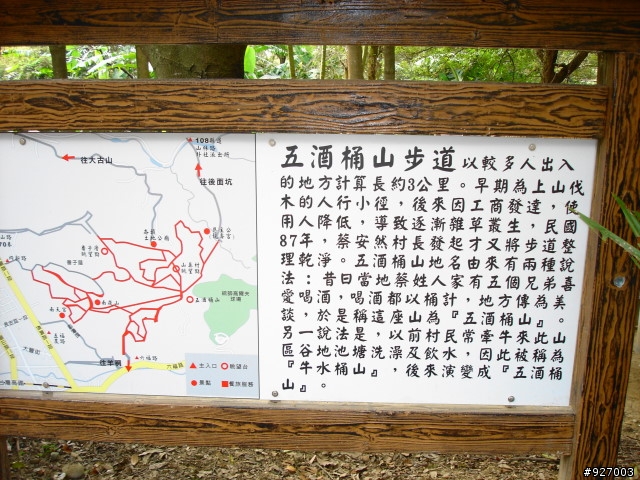 往大古山
108
往後面坑
五酒桶山
南天宮
六福路
主入口
眺望台
景點
餐飲服務
五酒桶山步道以較多人出入
的地方計算長約3公里。早期為上山伐
木的人行小徑，後來因工商發達，使
用人降低，導致逐漸雜草叢生，民國
87年，蔡安然村長發起才又將步道整
理乾淨。五酒桶山地名由來有兩種說
法：昔日當地蔡姓人家有五個兄弟喜
愛喝酒，喝酒都以桶計，地方傳為美
談，於是稱這座山為『五酒桶山』。
另一說法是，以前村民常牽牛來此山
區谷地池塘洗澡及飲水，因此被稱為
『牛水桶山』，後來演變成『五酒桶
山』。
#927003